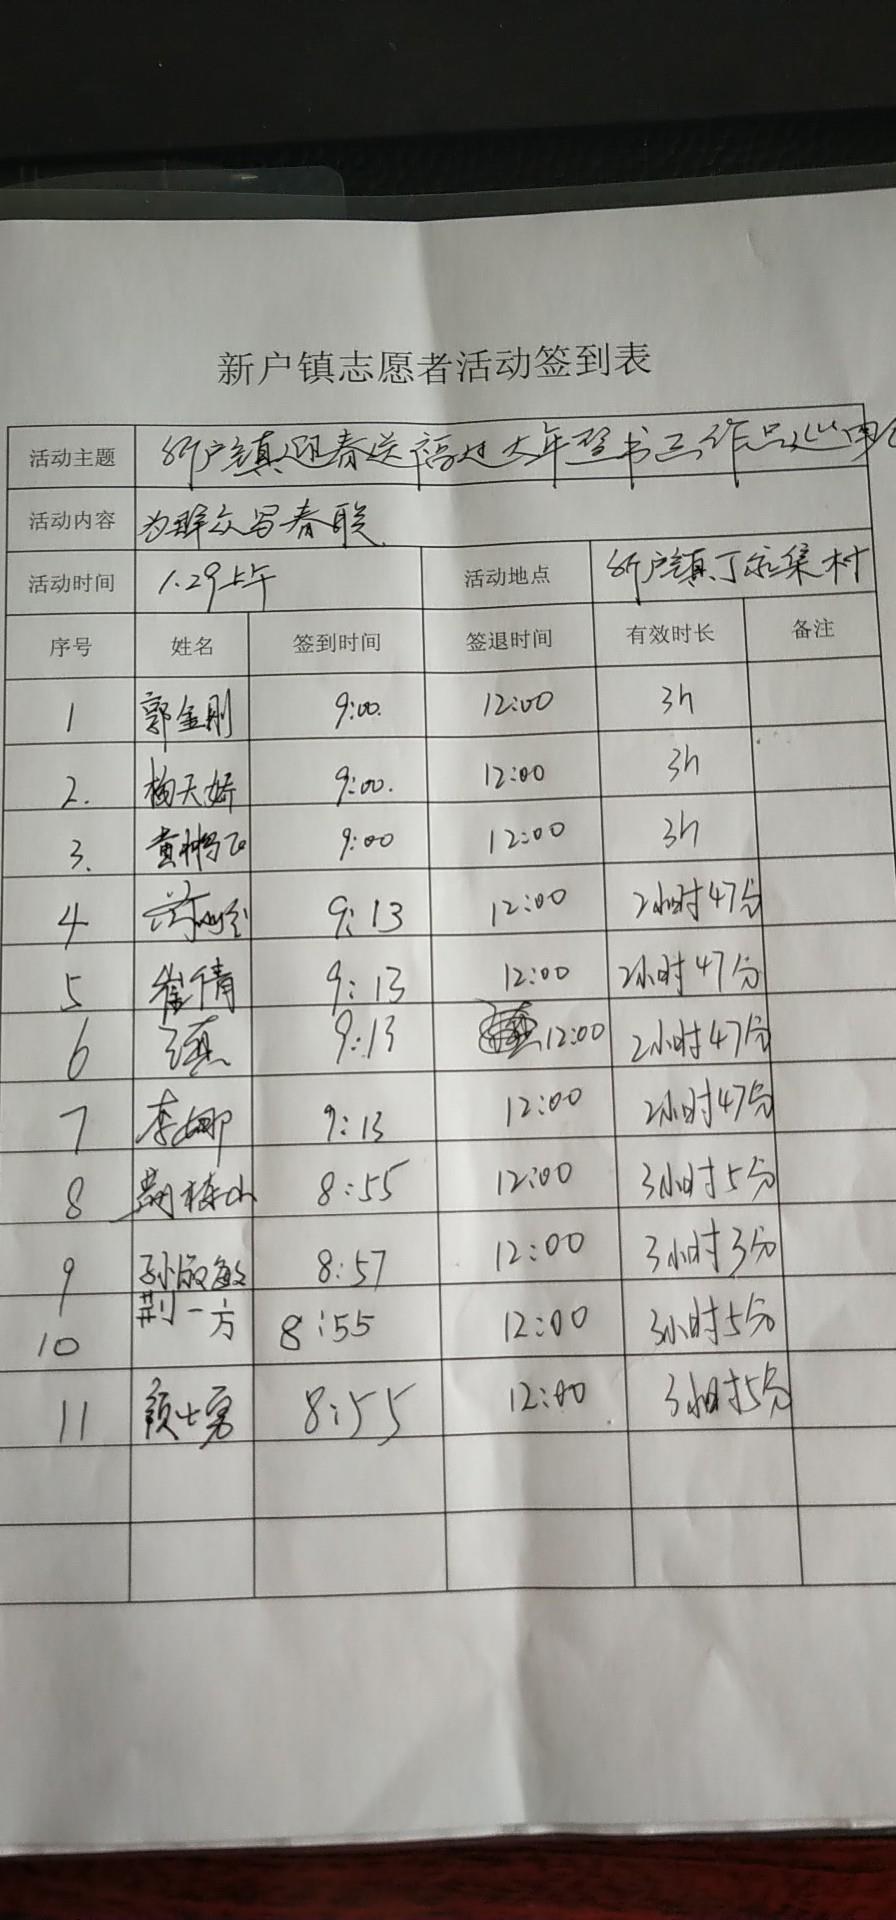 新户镇志愿者活动签到表
活动主题 新户镇迎春送福过大年暨书 作品巡
活动内容 为群众写春联
活动时间 1.29上午 活动地点 新户镇丁家集村
序号 姓名 签到时间 签退时间 有效时长 备注
1 郭金刚 9:00. 12:00 3h
2. 杨天娇 9:00. 12:00 3h
3. 黄鹏飞 9:00 12:00 3h
4 9:13 12:00 2小时47分
5 崔倩 9:13 12:00 2小时47分
6 9:13 12:00 2小时47分
7 李娜 9:13 12:00 2小时47分
8 8:55 12:00 3小时5分
9 孙敏敏 8:57 12:00 3小时3分
10 荆一方 8:55 12:00 3小时5分
11 顾士勇 8:55 12:00 3小时5分